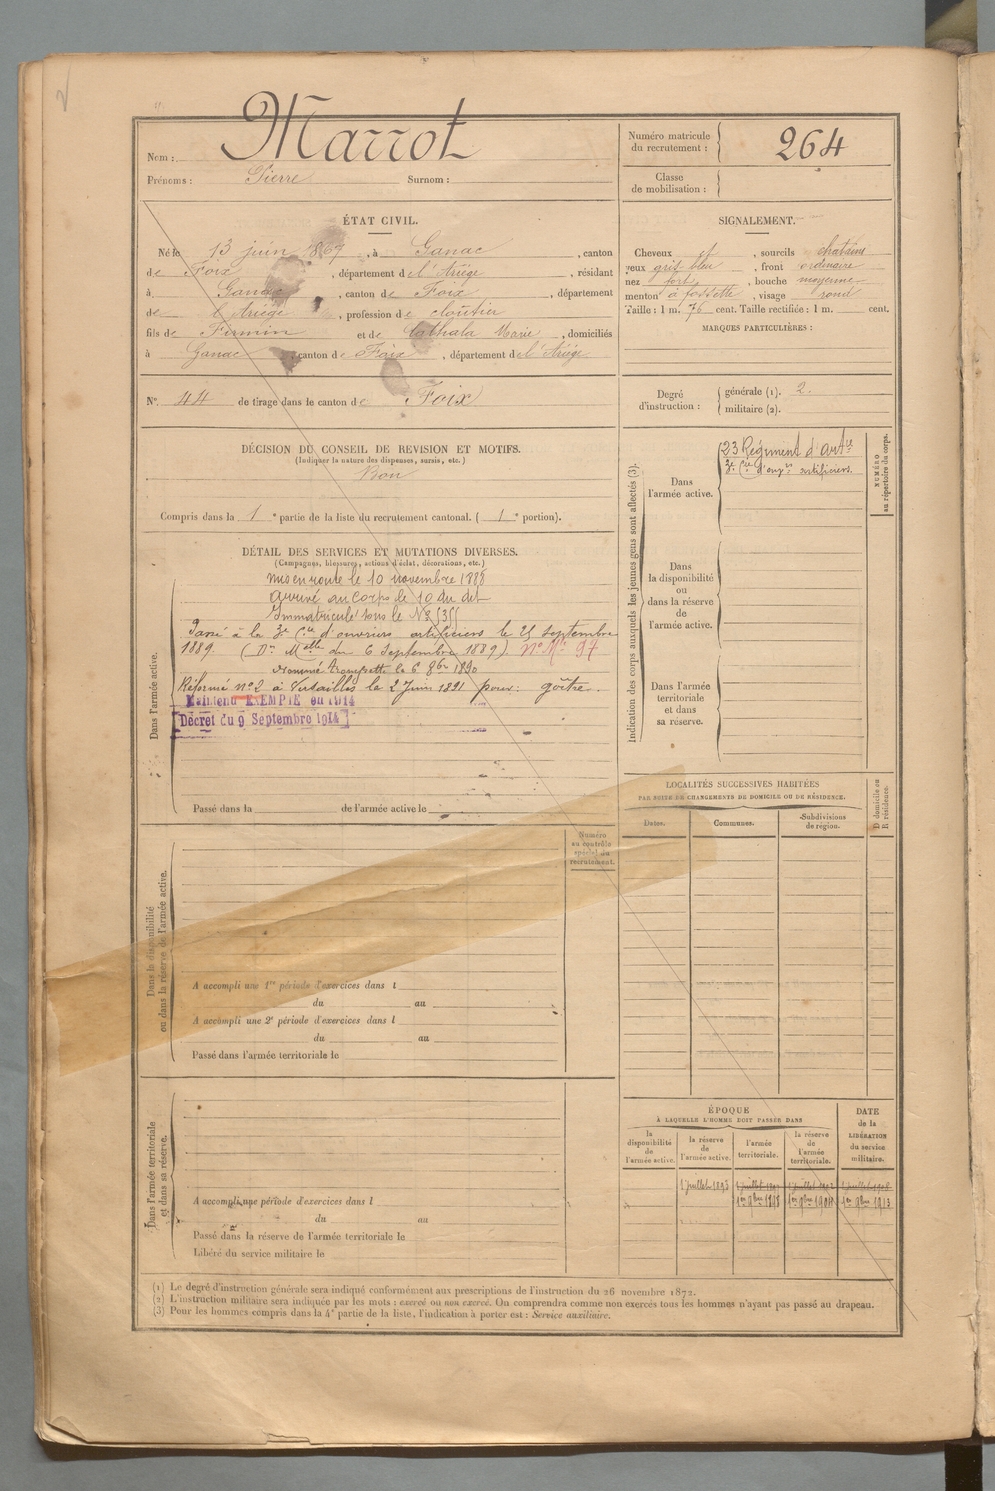 Nom : Marrot
Prénoms : Pierre Surnom :
Numéro matricule du recrutement : 264
Classe de mobilisation :
ÉTAT CIVIL.
Né le 13 juin 1867, à Ganac, canton
de Foix, département de l'Ariège, résidant
à Ganac, canton de Foix, département
de l'Ariège, profession de cloutier
fils de Firmin et de Cathala Marie, domiciliés
à Ganac, canton de Foix, département de l'Ariège
SIGNALEMENT.
Cheveux et, sourcils chatains
yeux gris bleu, front ordinaire
nez fort, bouche moyenne
menton à fossette, visage rond
Taille : 1 m. 76 cent. Taille rectifiée : 1 m. cent.
MARQUES PARTICULIÈRES :
N° 44 de tirage dans le canton de Foix
Degré d'instruction : générale (1). 2.
militaire (2).
DÉCISION DU CONSEIL DE REVISION ET MOTIFS.
(Indiquer la nature des dispenses, sursis, etc.)
Bon
Compris dans la 1e partie de la liste du recrutement cantonal. (1e portion).
DÉTAIL DES SERVICES ET MUTATIONS DIVERSES.
(Campagnes, blessures, actions d'éclat, décorations, etc.)
Dans l'armée active.
Mis en route le 10 novembre 1888
Arrivé au corps le 10 du dit
Immatriculé sous le N°
Passé à la 3e Cie d'ouvriers artificiers le 25 Septembre
1889. (Don Melle du 6 Septembre 1889). N° Mle 97
Nommé trompette le 6 8bre 1890
Réformé n°2 à Versailles le 2 Juin 1891 pour : goître.
Maintenu EXEMPTÉ en 1914
Décret du 9 Septembre 1914
Passé dans la de l'armée active le
Indication des corps auxquels les jeunes gens sont affectés (3).
Dans l'armée active.
23 Régiment d'Artie
3e Cie d'ouvrs artificiers.
NUMÉRO au répertoire du corps.
Dans la disponibilité ou dans la réserve de l'armée active.
Dans l'armée territoriale et dans sa réserve.
LOCALITÉS SUCCESSIVES HABITÉES
PAR SUITE DE CHANGEMENTS DE DOMICILE OU DE RÉSIDENCE.
Dates. Communes. Subdivisions de région. D domicile ou R résidence.
Dans la disponibilité ou dans la réserve de l'armée active.
Numéro au contrôle spécial du recrutement.
A accompli une 1re période d'exercices dans l
du au
A accompli une 2e période d'exercices dans l
du au
Passé dans l'armée territoriale le
Dans l'armée territoriale et dans sa réserve.
A accompli une période d'exercices dans l
du au
Passé dans la réserve de l'armée territoriale le
Libéré du service militaire le
ÉPOQUE
À LAQUELLE L'HOMME DOIT PASSER DANS
la disponibilité de l'armée active.
la réserve de l'armée active.
l'armée territoriale.
la réserve de l'armée territoriale.
DATE de la LIBÉRATION du service militaire.
1 juillet 1893 1 juillet 1 juillet 1 juillet 1908
1er 9bre 1898 1er 9bre 1er 9bre 1913
(1) Le degré d'instruction générale sera indiqué conformément aux prescriptions de l'instruction du 26 novembre 1872.
(2) L'instruction militaire sera indiquée par les mots : exercé ou non exercé. On comprendra comme non exercés tous les hommes n'ayant pas passé au drapeau.
(3) Pour les hommes compris dans la 4e partie de la liste, l'indication à porter est : Service auxiliaire.